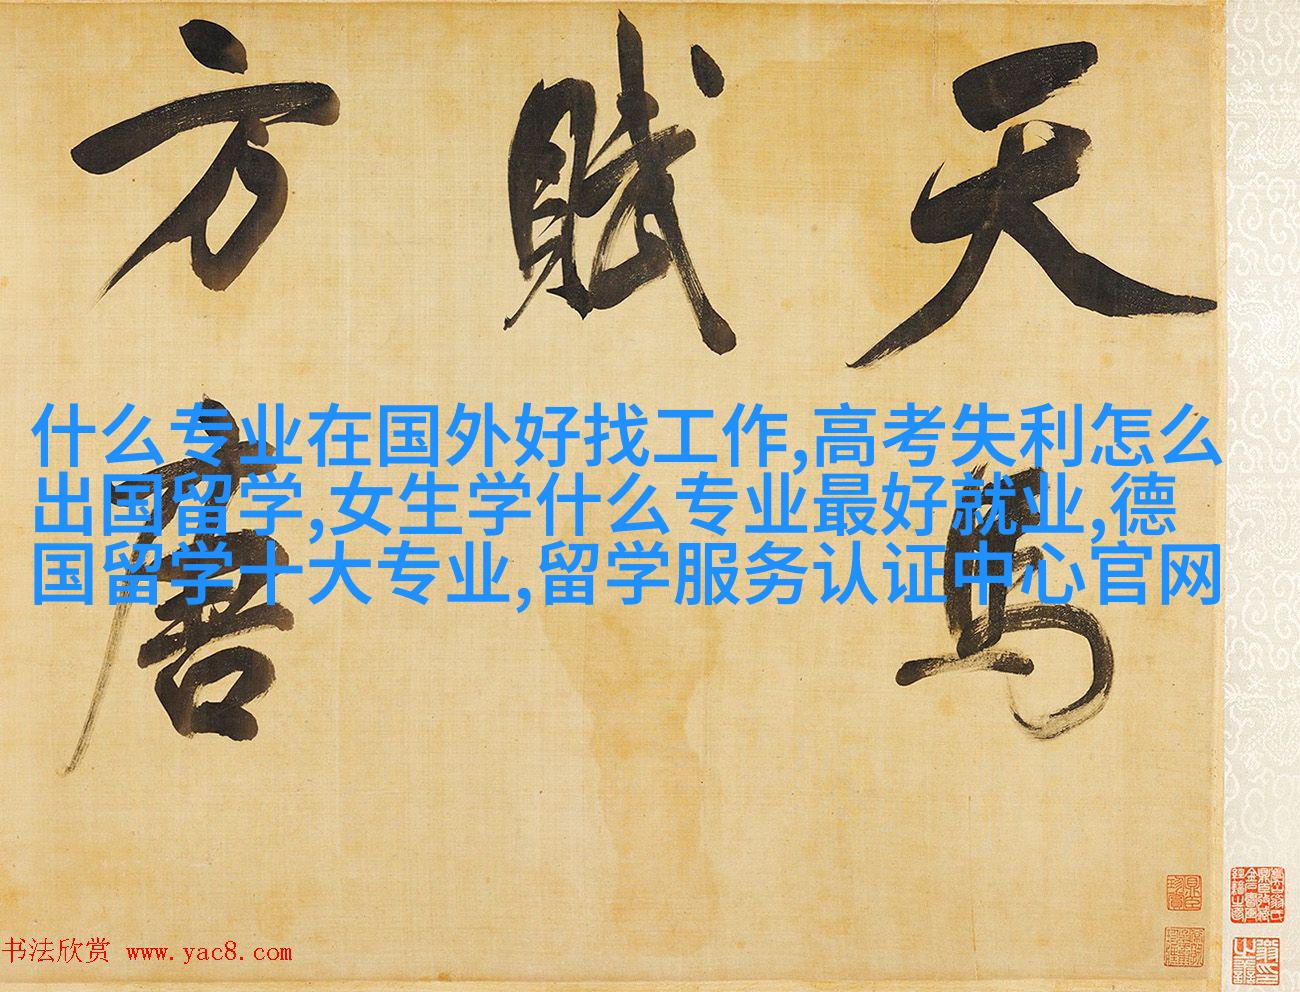 天马
赋
方唐
什么专业在国外好找工作,高考失利怎么
出国留学,女生学什么专业最好就业,德
国留学十大专业,留学服务认证中心官网
书法欣赏 www.yac8.com